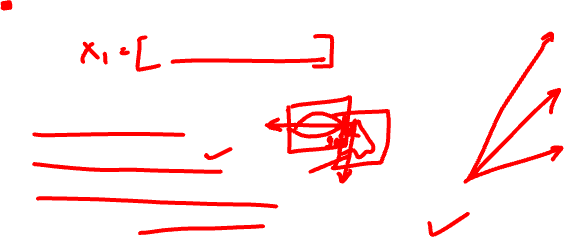 x₁ = [ ]